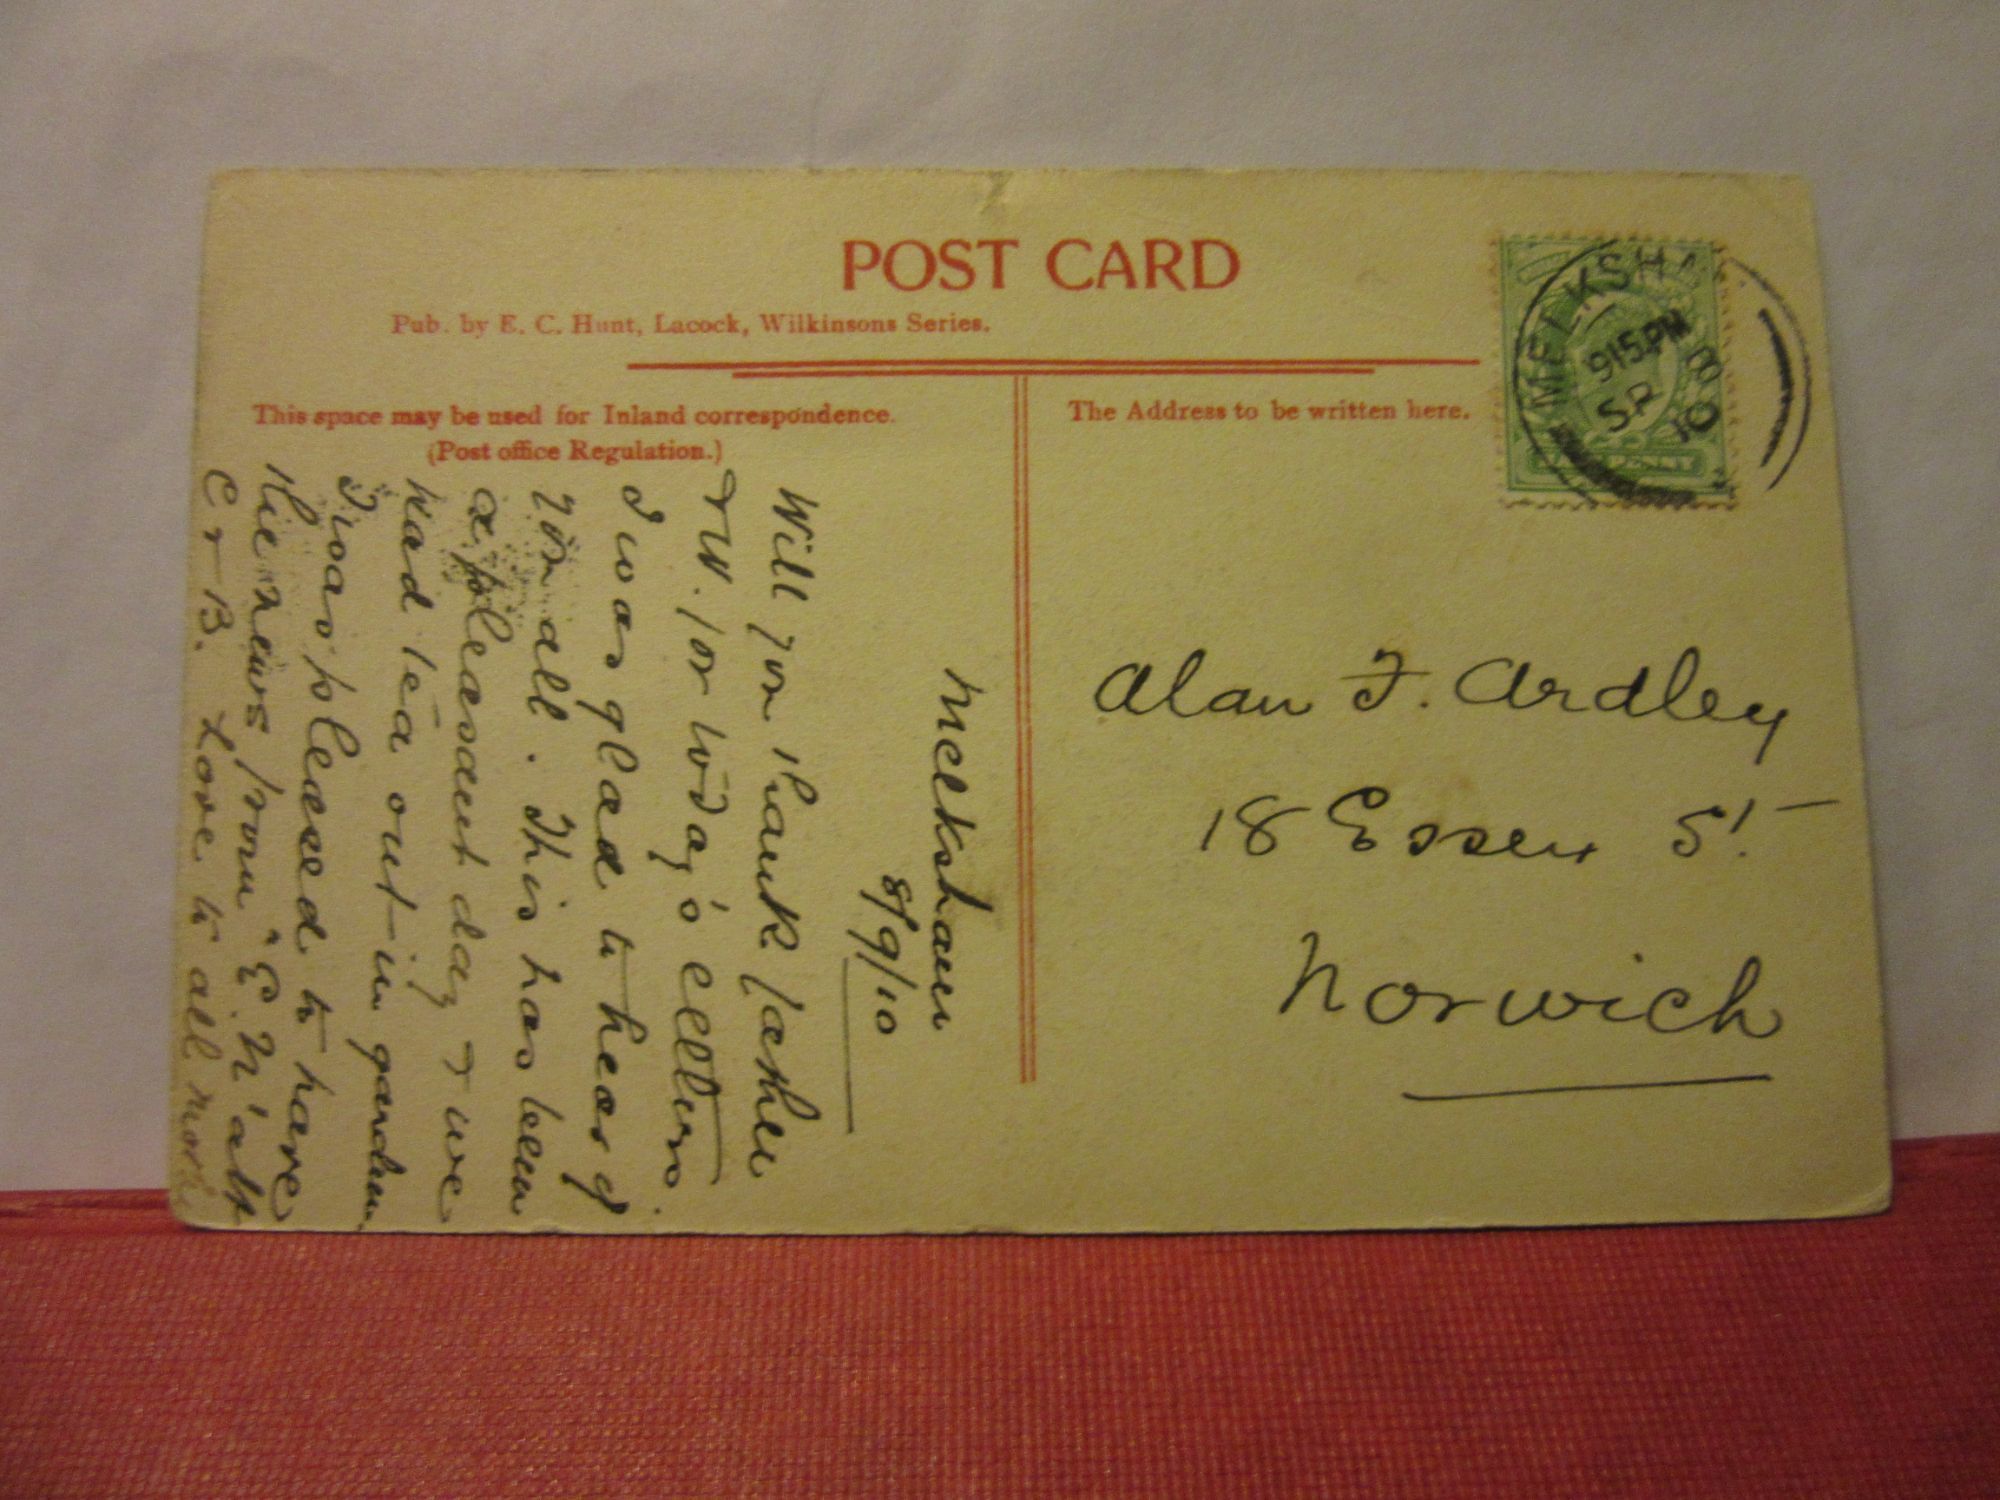 POST CARD
Pub. by E. C. Hunt, Lacock, Wilkinsons Series.
This space may be used for Inland correspondence.
(Post office Regulation.)
The Address to be written here.
MELKSHA
915PM
SP 8
10
HALFPENNY
Alan F. Ardley
18 Essex St
Norwich
Melksham
8/9/10
Will you thank father
+ W. for today's
I was glad to hear of
you all. This has been
a pleasant day + we
had tea out in garden.
I was pleased to have
the news from E. N
C + B. Love to all